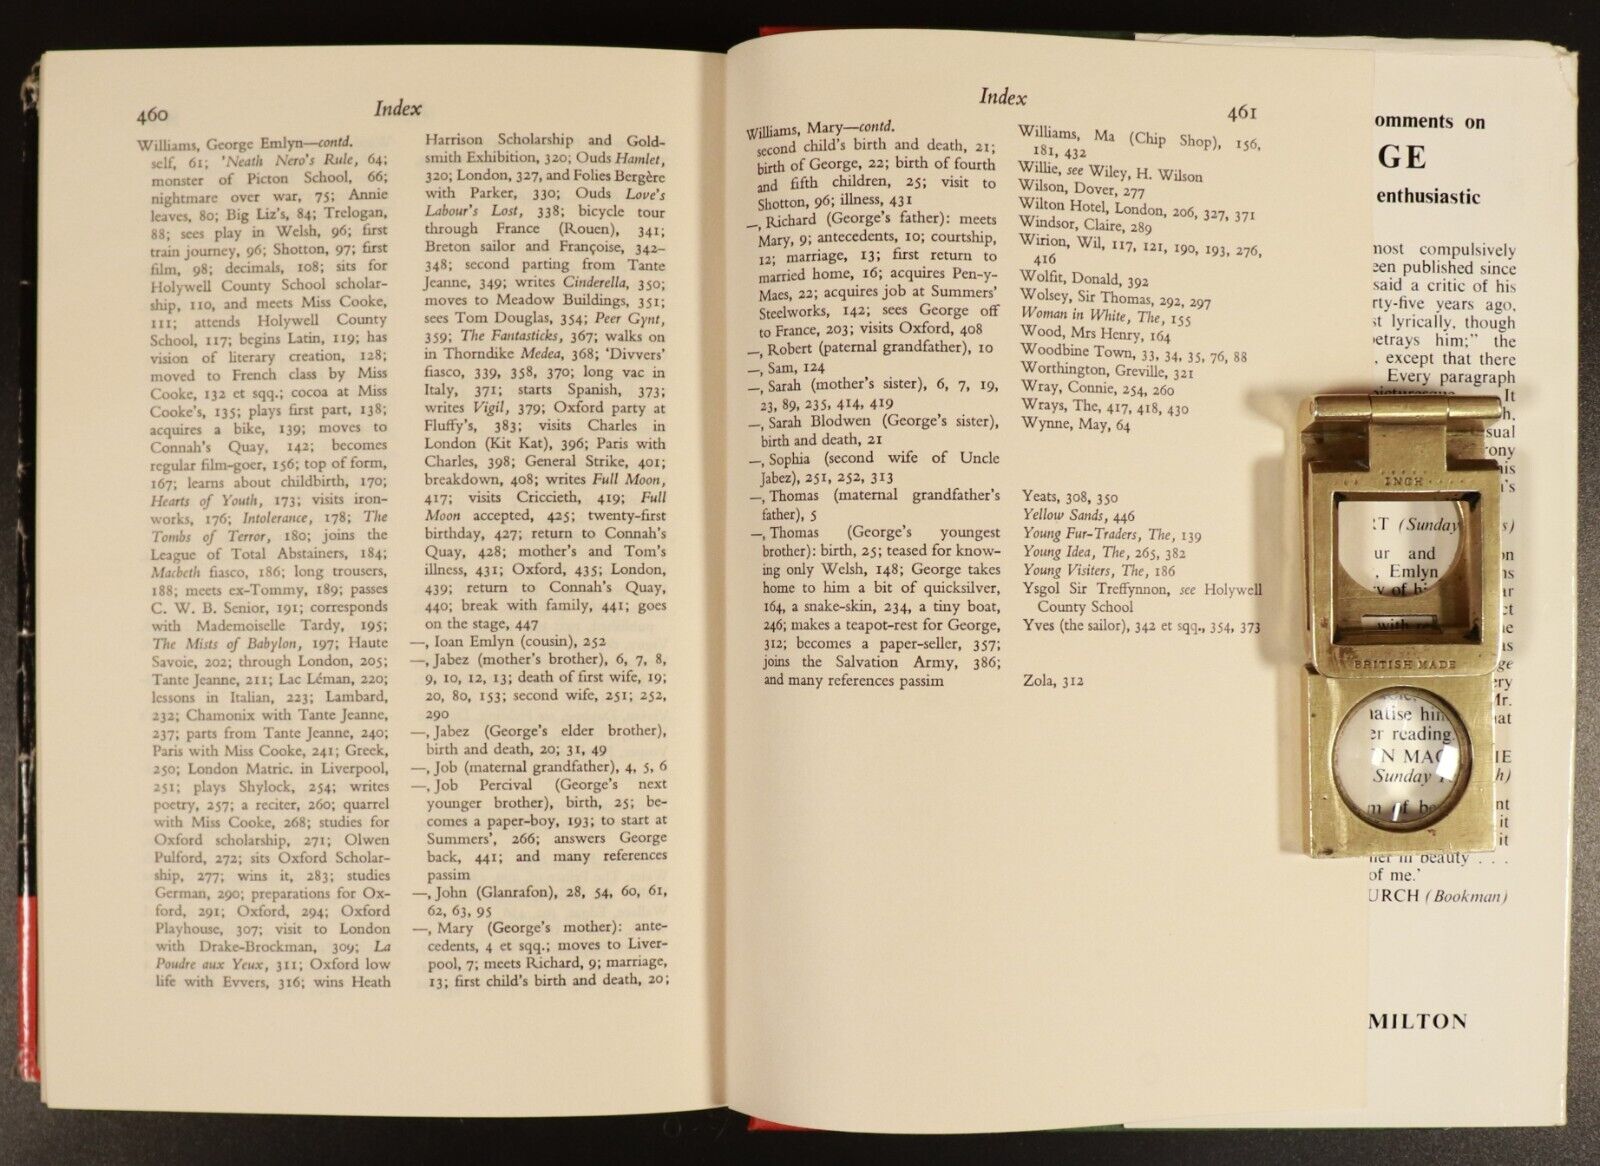 460
Index
Williams, George Emlyn—contd.
self, 61; 'Neath Nero's Rule, 64;
monster of Picton School, 66;
nightmare over war, 75; Annie
leaves, 80; Big Liz's, 84; Trelogan,
88; sees play in Welsh, 96; first
train journey, 96; Shotton, 97; first
film, 98; decimals, 108; sits for
Holywell County School scholar-
ship, 110, and meets Miss Cooke,
111; attends Holywell County
School, 117; begins Latin, 119; has
vision of literary creation, 128;
moved to French class by Miss
Cooke, 132 et sqq.; cocoa at Miss
Cooke's, 135; plays first part, 138;
acquires a bike, 139; moves to
Connah's Quay, 142; becomes
regular film-goer, 156; top of form,
167; learns about childbirth, 170;
Hearts of Youth, 173; visits iron-
works, 176; Intolerance, 178; The
Tombs of Terror, 180; joins the
League of Total Abstainers, 184;
Macbeth fiasco, 186; long trousers,
188; meets ex-Tommy, 189; passes
C. W. B. Senior, 191; corresponds
with Mademoiselle Tardy, 195;
The Mists of Babylon, 197; Haute
Savoie, 202; through London, 205;
Tante Jeanne, 211; Lac Léman, 220;
lessons in Italian, 223; Lambard,
232; Chamonix with Tante Jeanne,
237; parts from Tante Jeanne, 240;
Paris with Miss Cooke, 241; Greek,
250; London Matric. in Liverpool,
251; plays Shylock, 254; writes
poetry, 257; a reciter, 260; quarrel
with Miss Cooke, 268; studies for
Oxford scholarship, 271; Olwen
Pulford, 272; sits Oxford Scholar-
ship, 277; wins it, 283; studies
German, 290; preparations for Ox-
ford, 291; Oxford, 294; Oxford
Playhouse, 307; visit to London
with Drake-Brockman, 309; La
Poudre aux Yeux, 311; Oxford low
life with Evvers, 316; wins Heath
Harrison Scholarship and Gold-
smith Exhibition, 320; Ouds Hamlet,
320; London, 327, and Folies Bergère
with Parker, 330; Ouds Love's
Labour's Lost, 338; bicycle tour
through France (Rouen), 341;
Breton sailor and Françoise, 342–
348; second parting from Tante
Jeanne, 349; writes Cinderella, 350;
moves to Meadow Buildings, 351;
sees Tom Douglas, 354; Peer Gynt,
359; The Fantasticks, 367; walks on
in Thorndike Medea, 368; 'Divvers'
fiasco, 339, 358, 370; long vac in
Italy, 371; starts Spanish, 373;
writes Vigil, 379; Oxford party at
Fluffy's, 383; visits Charles in
London (Kit Kat), 396; Paris with
Charles, 398; General Strike, 401;
breakdown, 408; writes Full Moon,
417; visits Criccieth, 419; Full
Moon accepted, 425; twenty-first
birthday, 427; return to Connah's
Quay, 428; mother's and Tom's
illness, 431; Oxford, 435; London,
439; return to Connah's Quay,
440; break with family, 441; goes
on the stage, 447
—, Ioan Emlyn (cousin), 252
—, Jabez (mother's brother), 6, 7, 8,
9, 10, 12, 13; death of first wife, 19;
20, 80, 153; second wife, 251; 252,
290
—, Jabez (George's elder brother),
birth and death, 20; 31, 49
—, Job (maternal grandfather), 4, 5, 6
—, Job Percival (George's next
younger brother), birth, 25; be-
comes a paper-boy, 193; to start at
Summers', 266; answers George
back, 441; and many references
passim
—, John (Glanrafon), 28, 54, 60, 61,
62, 63, 95
—, Mary (George's mother): ante-
cedents, 4 et sqq.; moves to Liver-
pool, 7; meets Richard, 9; marriage,
13; first child's birth and death, 20;
Index
461
Williams, Mary—contd.
second child's birth and death, 21;
birth of George, 22; birth of fourth
and fifth children, 25; visit to
Shotton, 96; illness, 431
—, Richard (George's father): meets
Mary, 9; antecedents, 10; courtship,
12; marriage, 13; first return to
married home, 16; acquires Pen-y-
Maes, 22; acquires job at Summers'
Steelworks, 142; sees George off
to France, 203; visits Oxford, 408
—, Robert (paternal grandfather), 10
—, Sam, 124
—, Sarah (mother's sister), 6, 7, 19,
23, 89, 235, 414, 419
—, Sarah Blodwen (George's sister),
birth and death, 21
—, Sophia (second wife of Uncle
Jabez), 251, 252, 313
—, Thomas (maternal grandfather's
father), 5
—, Thomas (George's youngest
brother): birth, 25; teased for know-
ing only Welsh, 148; George takes
home to him a bit of quicksilver,
164, a snake-skin, 234, a tiny boat,
246; makes a teapot-rest for George,
312; becomes a paper-seller, 357;
joins the Salvation Army, 386;
and many references passim
Williams, Ma (Chip Shop), 156,
181, 432
Willie, see Wiley, H. Wilson
Wilson, Dover, 277
Wilton Hotel, London, 206, 327, 371
Windsor, Claire, 289
Wirion, Wil, 117, 121, 190, 193, 276,
416
Wolfit, Donald, 392
Wolsey, Sir Thomas, 292, 297
Woman in White, The, 155
Wood, Mrs Henry, 164
Woodbine Town, 33, 34, 35, 76, 88
Worthington, Greville, 321
Wray, Connie, 254, 260
Wrays, The, 417, 418, 430
Wynne, May, 64
Yeats, 308, 350
Yellow Sands, 446
Young Fur-Traders, The, 139
Young Idea, The, 265, 382
Young Visiters, The, 186
Ysgol Sir Treffynnon, see Holywell
County School
Yves (the sailor), 342 et sqq., 354, 373
Zola, 312
omments on
GE
enthusiastic
most compulsively
een published since
said a critic of his
rty-five years ago,
st lyrically, though
etrays him;" the
, except that there
Every paragraph
It
sual
rony
his
(Sunday
ur and
, Emlyn
INCH
BRITISH MADE
er reading.
Sunday
it
it
in beauty . . .
of me.'
URCH (Bookman)
MILTON